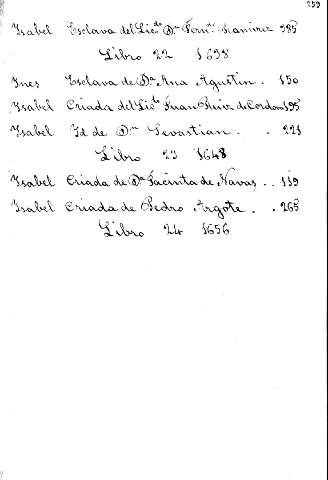 259
Isabel Esclava del Licdo Dn Ferndo Ramirez 385
Libro 22 1638
Ines Esclava de Da Ana Agustin . 150
Isabel Criada del Licdo Juan Ruiz de Cordova 195
Isabel Id de Dn Sevastian . . 221
Libro 23 1648
Isabel Criada de Da Jacinta de Navas . . 119
Isabel Criada de Pedro Argote . . 265
Libro 24 1656